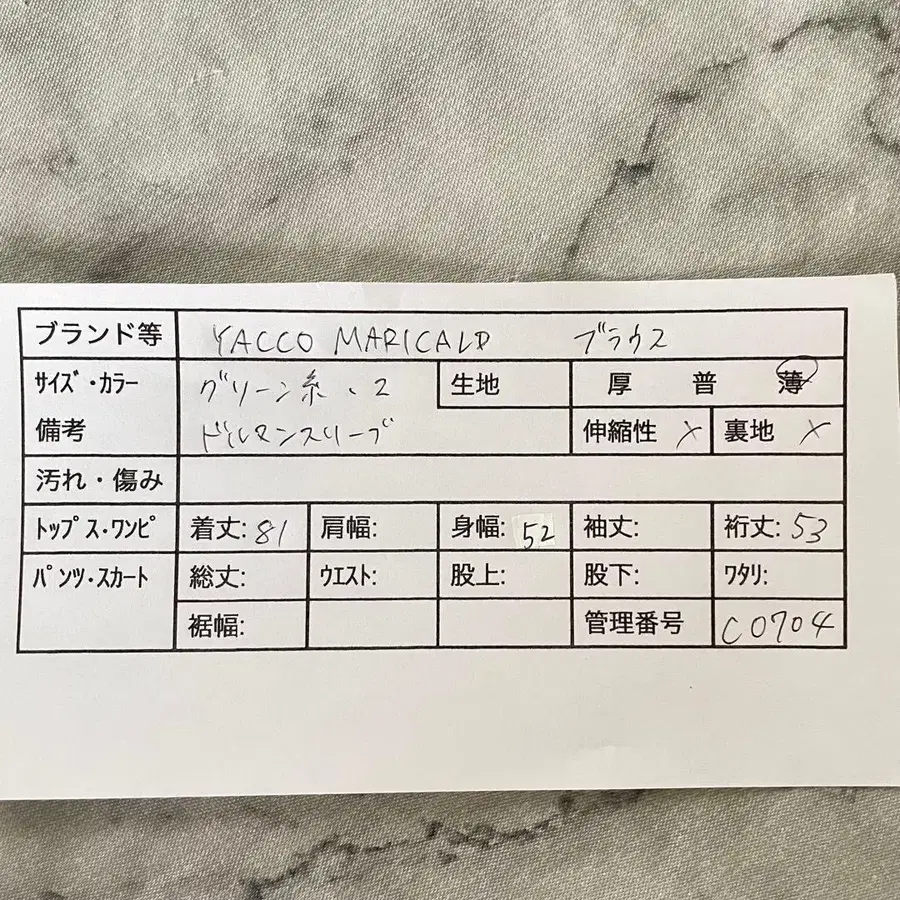 ブランド等 YACCO MARICALD ブラウス
サイズ・カラー グリーン系、2 生地 厚 普 薄
備考 ドルマンスリーブ 伸縮性 × 裏地 ×
汚れ・傷み
トップス・ワンピ 着丈: 81 肩幅: 身幅: 52 袖丈: 裄丈: 53
パンツ・スカート 総丈: ウエスト: 股上: 股下: ワタリ:
裾幅: 管理番号 C0704